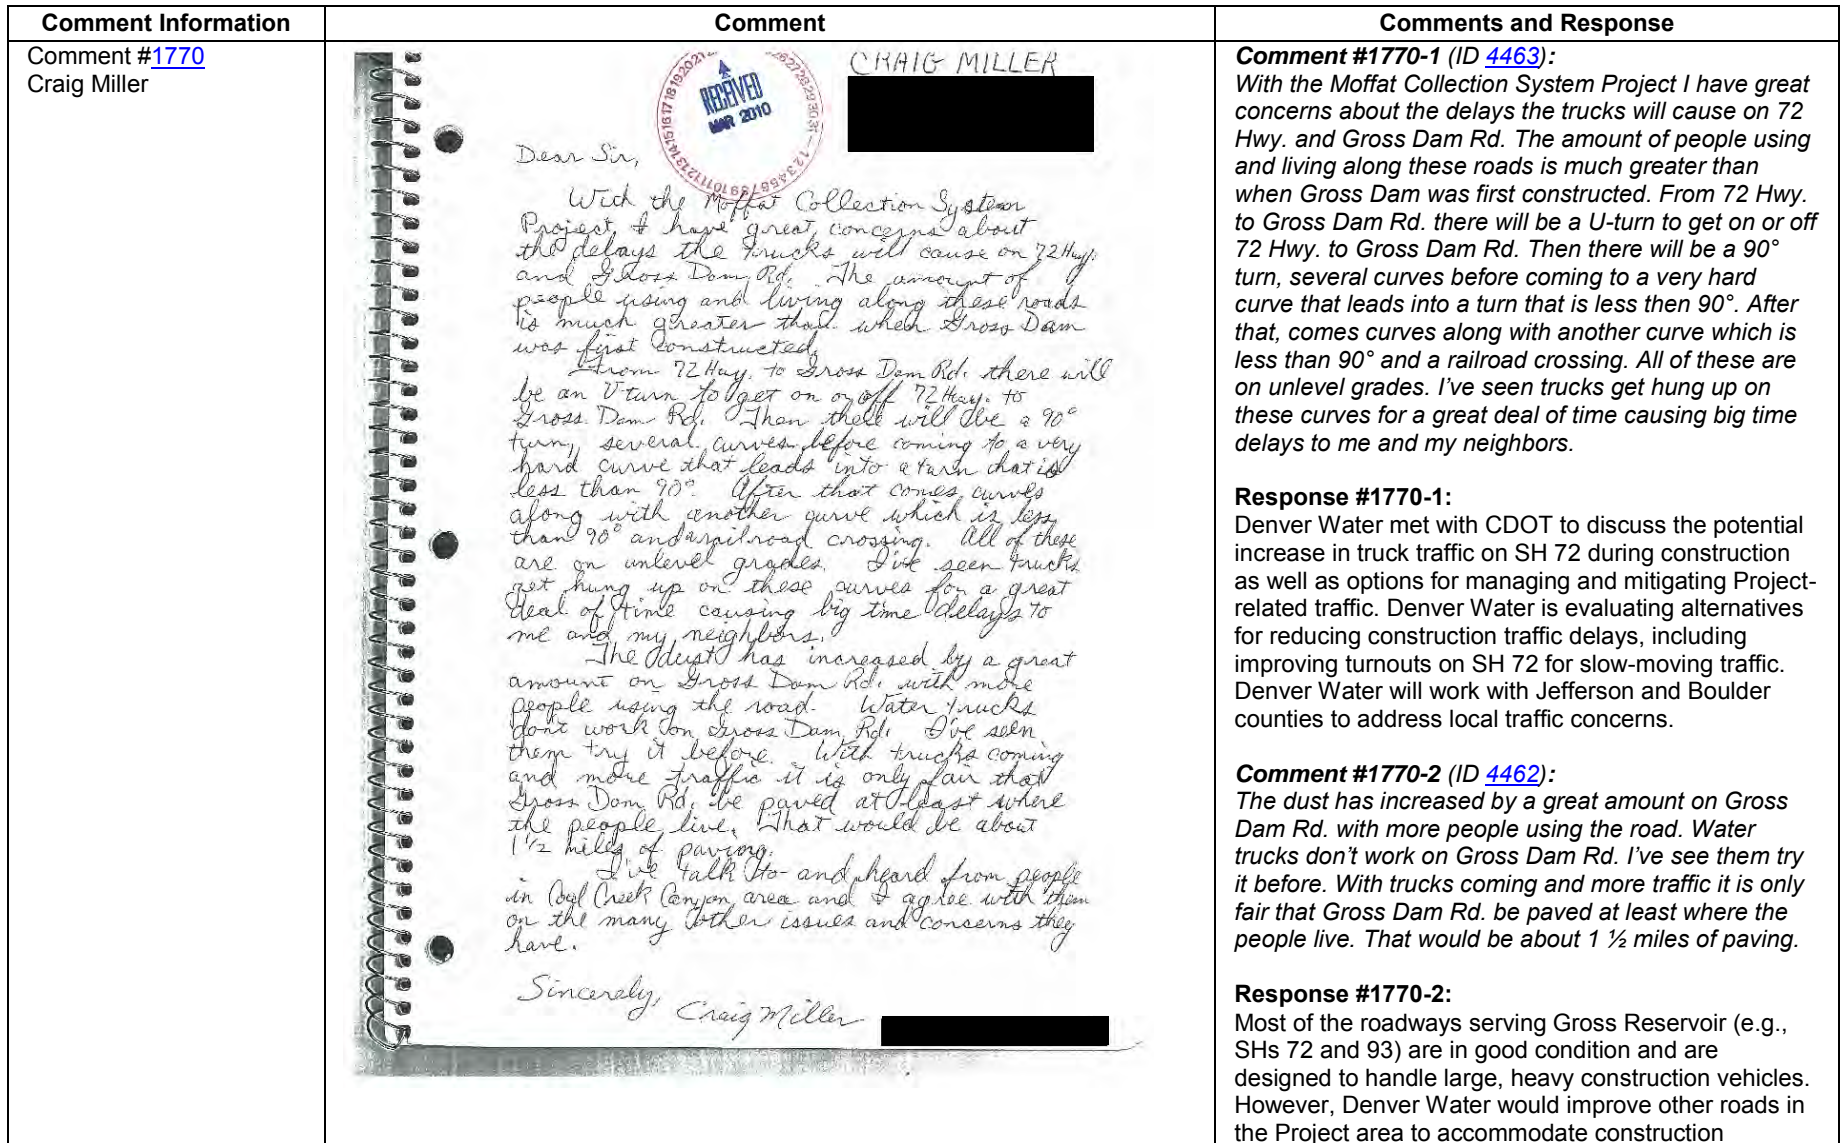 Comment Information
Comment
Comments and Response
Comment #1770
Craig Miller
CRAIG MILLER
RECEIVED
MAR 2010
Dear Sir,
With the Moffat Collection System
Project, I have great concerns about
the delays the trucks will cause on 72 Hwy.
and Gross Dam Rd. The amount of
people using and living along these roads
is much greater than when Gross Dam
was first constructed.
From 72 Hwy. to Gross Dam Rd. there will
be an U-turn to get on or off 72 Hwy. to
Gross Dam Rd. Then there will be a 90°
turn, several curves before coming to a very
hard curve that leads into a turn that is
less than 90°. After that comes curves
along with another curve which is less
than 90° and a railroad crossing. All of these
are on unlevel grades. I've seen trucks
get hung up on these curves for a great
deal of time causing big time delays to
me and my neighbors.
The dust has increased by a great
amount on Gross Dam Rd. with more
people using the road. Water trucks
dont work on Gross Dam Rd. I've seen
them try it before. With trucks coming
and more traffic it is only fair that
Gross Dam Rd. be paved at least where
the people live. That would be about
1 1/2 miles of paving.
I've talk to and heard from people
in Coal Creek Canyon area and I agree with them
on the many other issues and concerns they
have.
Sincerely,
Craig Miller
Comment #1770-1 (ID 4463):
With the Moffat Collection System Project I have great
concerns about the delays the trucks will cause on 72
Hwy. and Gross Dam Rd. The amount of people using
and living along these roads is much greater than
when Gross Dam was first constructed. From 72 Hwy.
to Gross Dam Rd. there will be a U-turn to get on or off
72 Hwy. to Gross Dam Rd. Then there will be a 90°
turn, several curves before coming to a very hard
curve that leads into a turn that is less then 90°. After
that, comes curves along with another curve which is
less than 90° and a railroad crossing. All of these are
on unlevel grades. I've seen trucks get hung up on
these curves for a great deal of time causing big time
delays to me and my neighbors.
Response #1770-1:
Denver Water met with CDOT to discuss the potential
increase in truck traffic on SH 72 during construction
as well as options for managing and mitigating Project-
related traffic. Denver Water is evaluating alternatives
for reducing construction traffic delays, including
improving turnouts on SH 72 for slow-moving traffic.
Denver Water will work with Jefferson and Boulder
counties to address local traffic concerns.
Comment #1770-2 (ID 4462):
The dust has increased by a great amount on Gross
Dam Rd. with more people using the road. Water
trucks don't work on Gross Dam Rd. I've see them try
it before. With trucks coming and more traffic it is only
fair that Gross Dam Rd. be paved at least where the
people live. That would be about 1 ½ miles of paving.
Response #1770-2:
Most of the roadways serving Gross Reservoir (e.g.,
SHs 72 and 93) are in good condition and are
designed to handle large, heavy construction vehicles.
However, Denver Water would improve other roads in
the Project area to accommodate construction